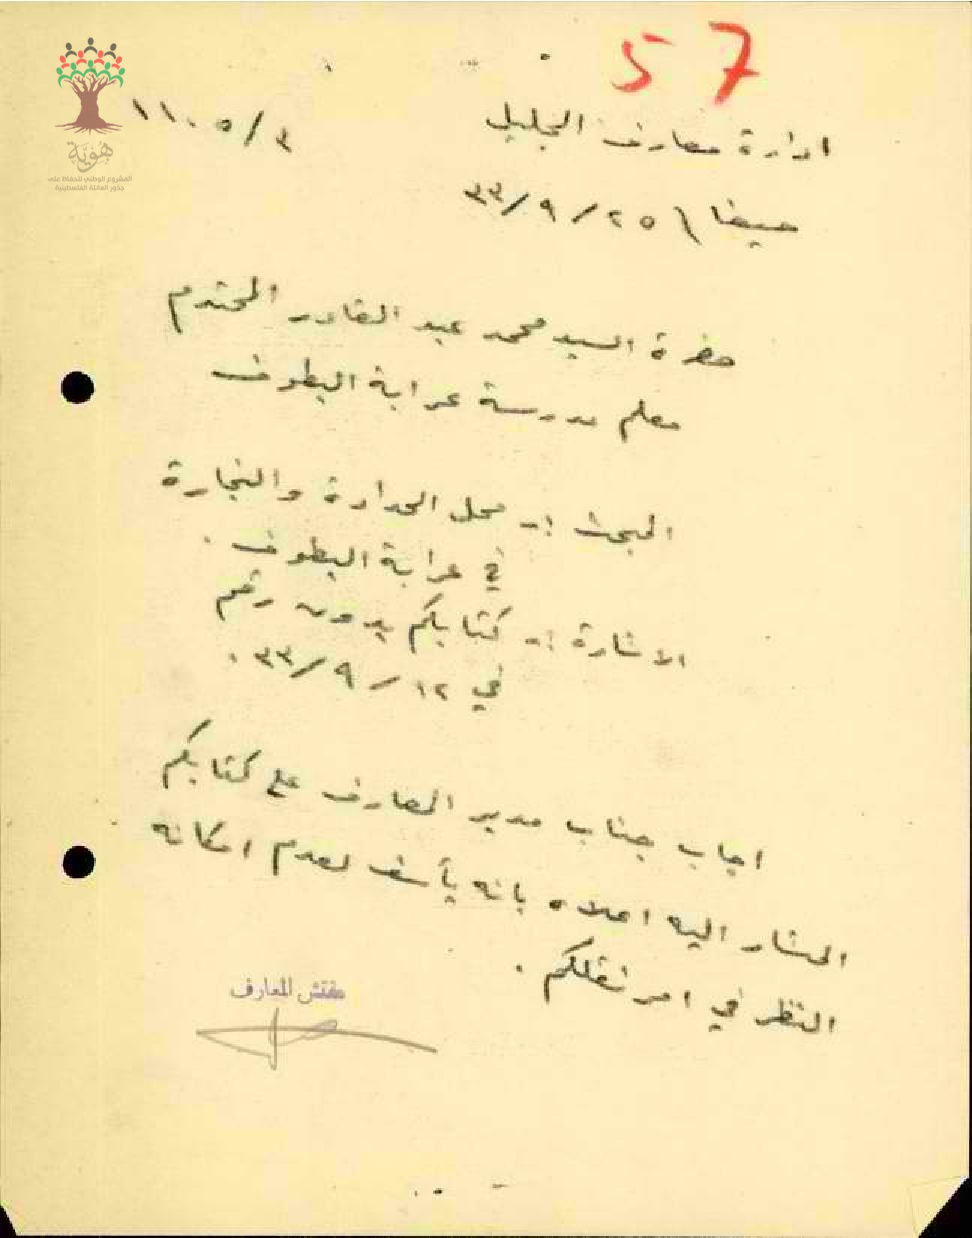 57
ادارة معارف الجليل
١١٠٥/٣
حيفا \ ٢٥/٩/٣٣
حضرة السيد محمد عبد القادر المحترم
معلم مدرسة عرابة البطوف
المبحث :- محل الحدادة والنجارة
في عرابة البطوف .
الاشارة :- كتابكم بدون رقم
في ١٢/٩/٣٣ .
اجاب جناب مدير المعارف على كتابكم
المشار اليه اعلاه بانه يأسف لعدم امكانه
النظر في امر نقلكم .
مفتش المعارف
هوية
المشروع الوطني للحفاظ على
جذور العائلة الفلسطينية